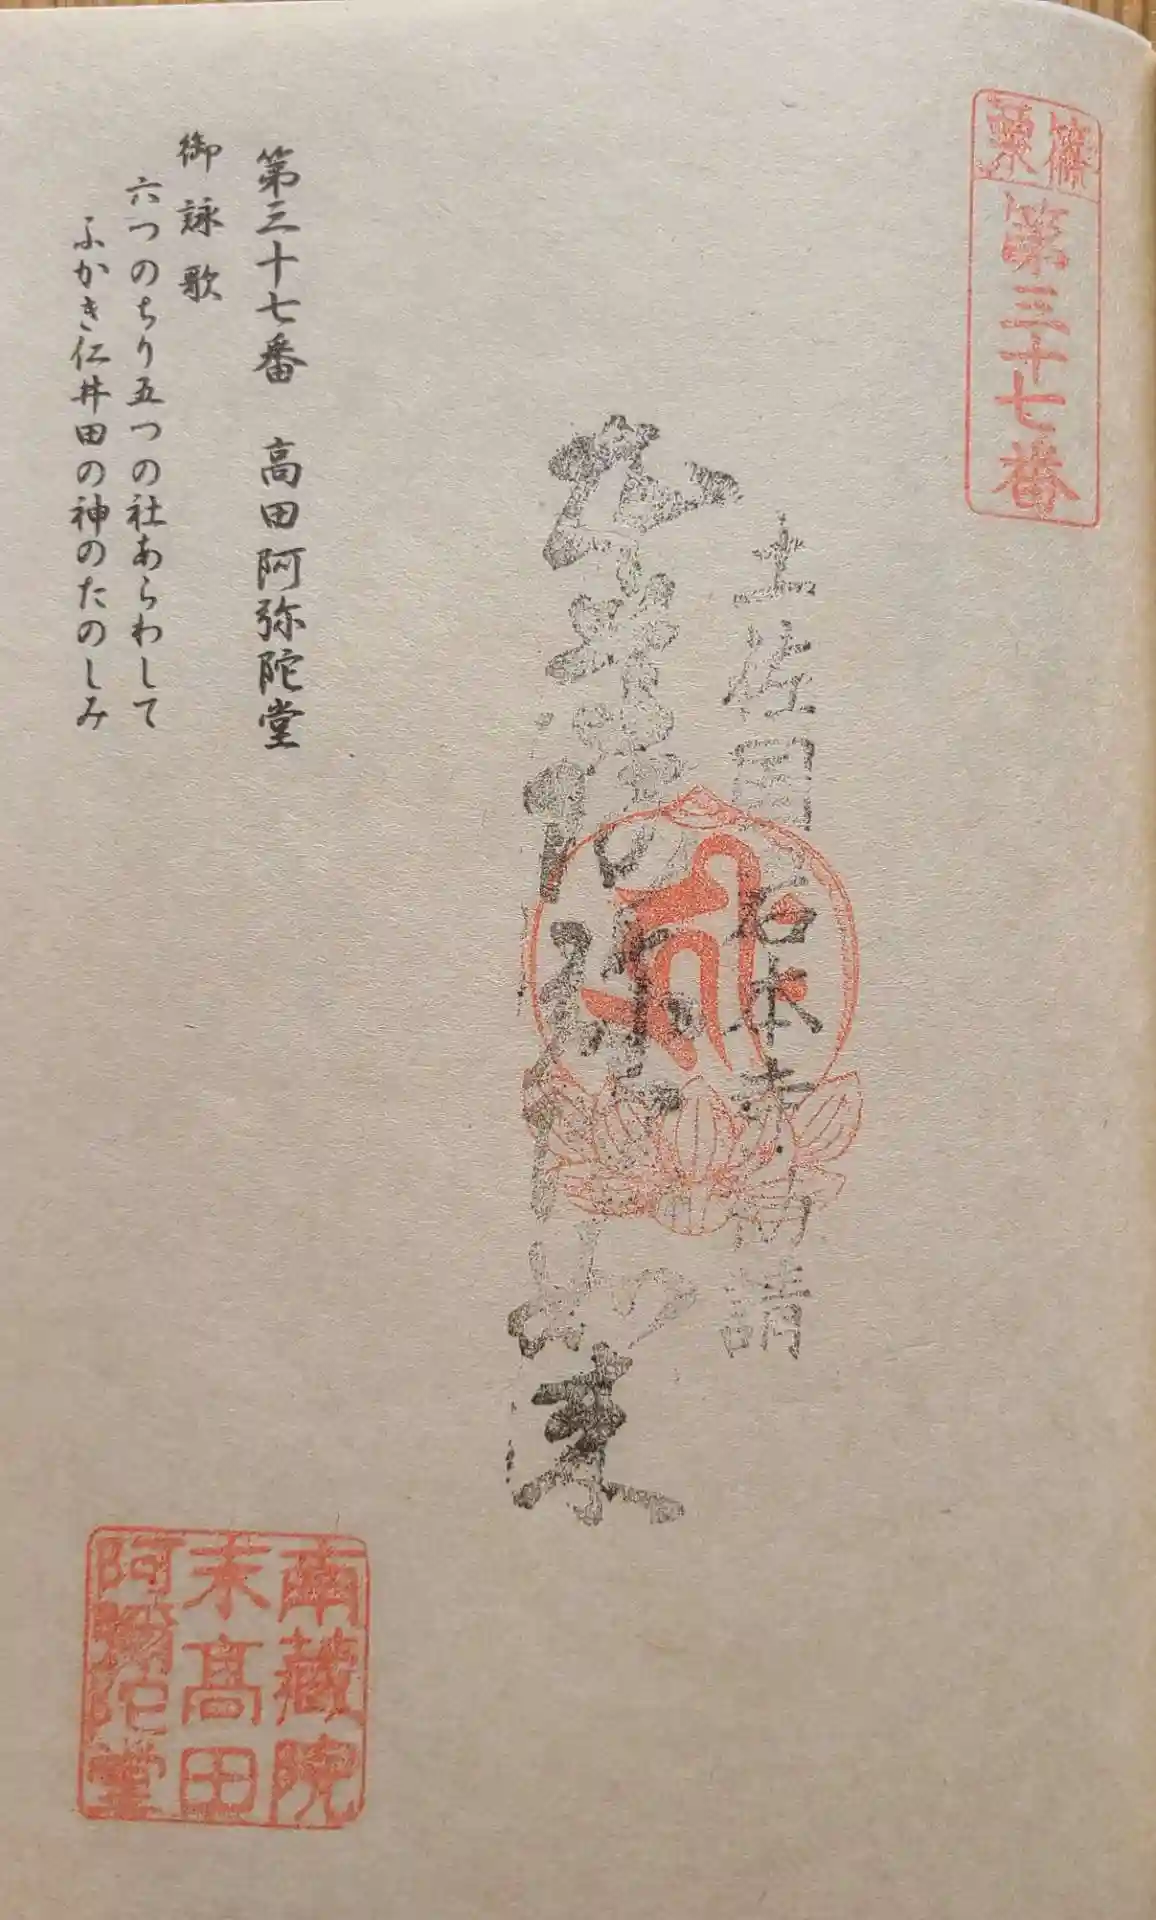 篠栗
第三十七番
土佐国岩本寺勧請
本尊阿弥陀如来
第三十七番 高田阿弥陀堂
御詠歌
六つのちり五つの社あらわして
ふかき仁井田の神のたのしみ
南蔵院
末高田
阿彌陀堂